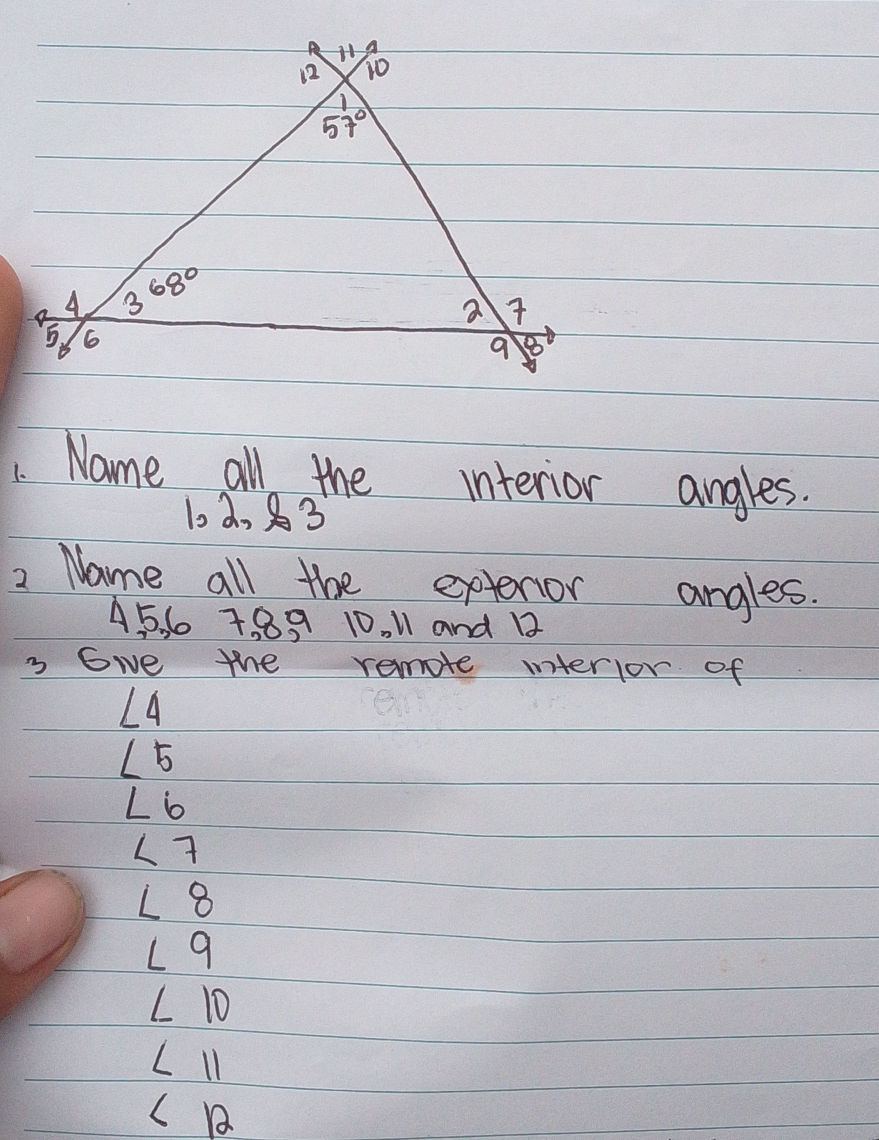 12 11 10
1
57°
3 68°
4
5 6
2 7
9 8
1. Name all the interior angles.
1, 2, & 3
2 Name all the exterior angles.
4,5,6 7,8,9 10,11 and 12
3 Give the remote interior of
∠4
∠5
∠6
∠7
∠8
∠9
∠10
∠11
∠12